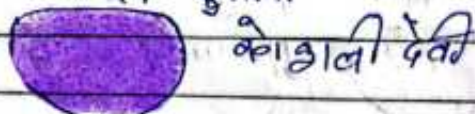 कोशली देवी